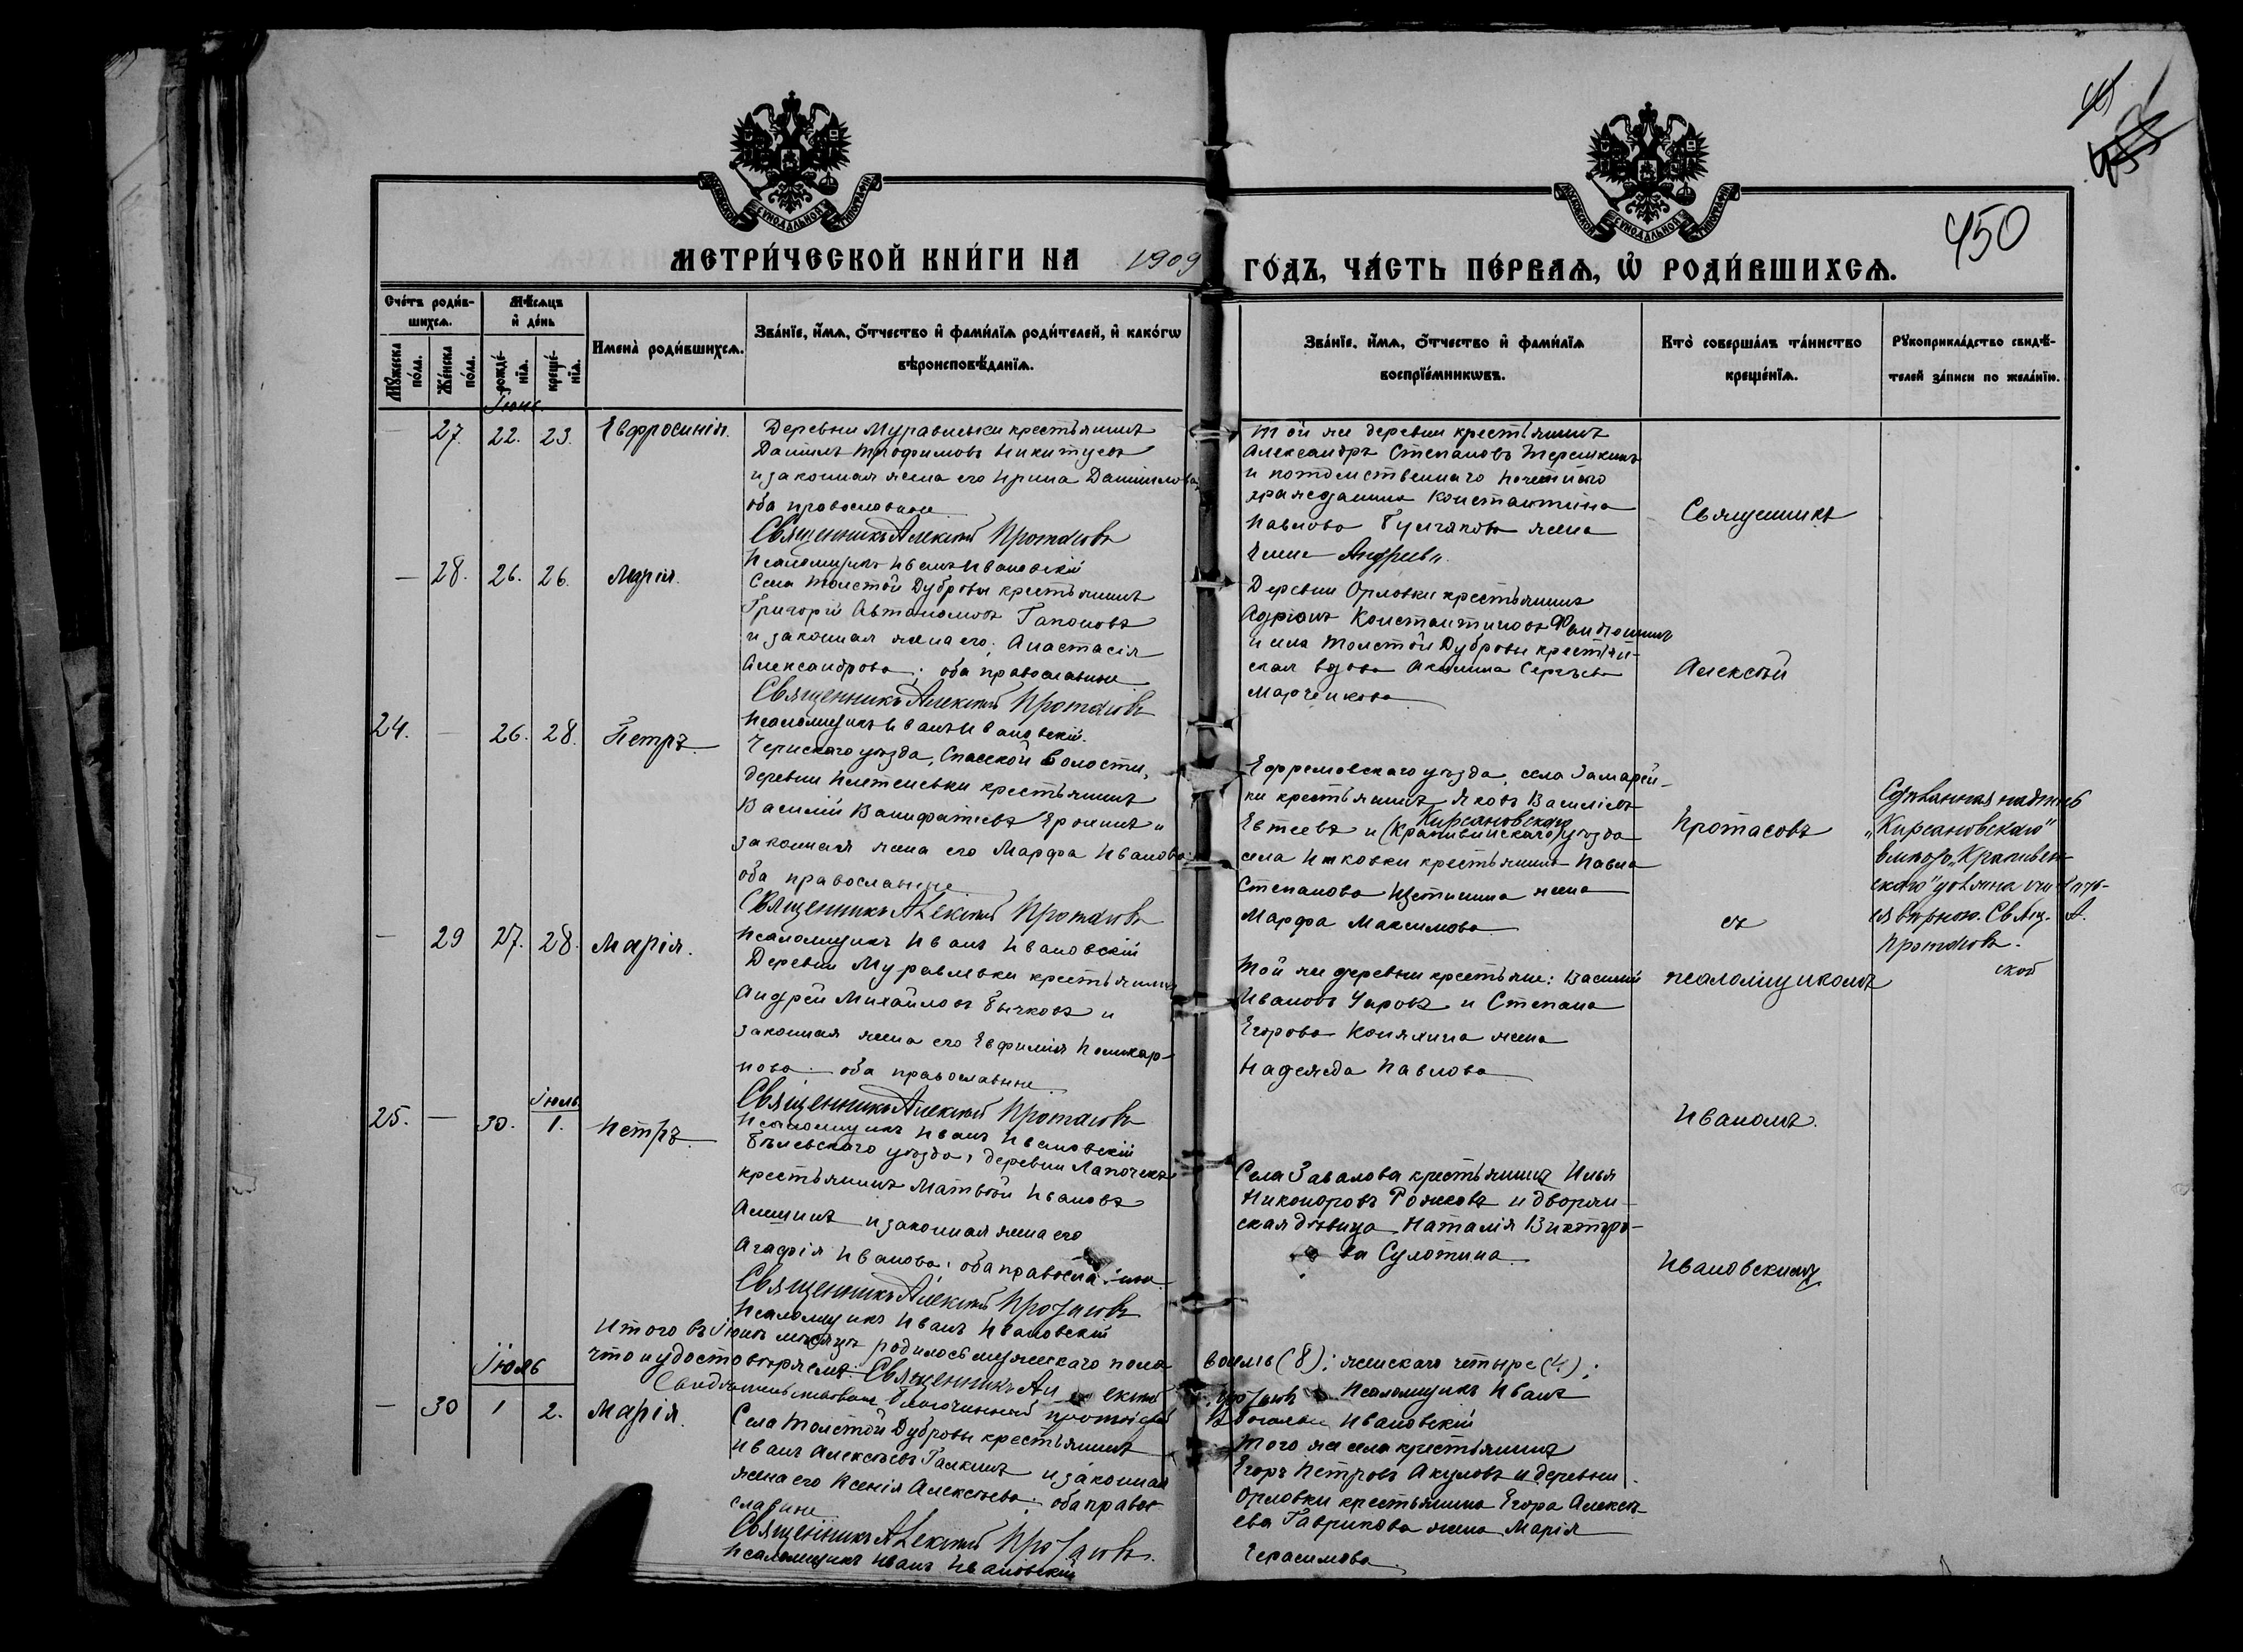 450
МОСКОВСКОЙ СѴНОДАЛЬНОЙ ТИПОГРАФІИ
МОСКОВСКОЙ СѴНОДАЛЬНОЙ ТИПОГРАФІИ
МЕТРИ́ЧЕСКОЙ КНИ́ГИ НА 1909 ГО́ДЪ, ЧА́СТЬ ПЕ́РВАѦ, Ѡ҆ РОДИ́ВШИХСѦ.
Сче́тъ роди́в-
шихсѧ.
Мѣ́сѧцъ
и҆ де́нь
Мꙋ́жеска по́ла.
Же́нска по́ла.
рожде́-
нїѧ.
креще́-
нїѧ.
И҆мена̀ роди́вшихсѧ.
Зва́нїе, и҆́мѧ, ѻ҆́тчество и҆ фами́лїѧ роди́телей, и҆ како́гѡ
вѣроисповѣ́данїѧ.
Зва́нїе, и҆́мѧ, ѻ҆́тчество и҆ фами́лїѧ
воспрїе́мникѡвъ.
Кто̀ соверша́лъ та́инство
креще́нїѧ.
Рꙋкоприкла́дство свидѣ́-
телей за́писи по жела́нїю.
Іюнь.
— 27. 22. 23. Евфросинія.
Деревни Муравлевки крестьянинъ
Даніилъ Трофимовъ Никитусъ
и законная жена его Ирина Даниилова
оба православные
Священникъ Алексій Протасовъ
Псаломщикъ Иванъ Ивановскій
Той же деревни крестьянинъ
Александръ Степановъ Терешкинъ
и потомственнаго почетнаго
гражданина Константина
Павлова жена
Анна Андреев.
Священникъ
— 28. 26. 26. Марія.
Села Толстой Дубровы крестьянинъ
Григорій Автономовъ Гапоновъ
и законная жена его: Анастасія
Александрова; оба православные
Священникъ Алексій Протасовъ
Псаломщикъ Иванъ Ивановскій.
Деревни Орловки крестьянинъ
Адріанъ Константиновъ
и села Толстой Дубровы крестьян-
ская вдова Акилина Сергѣева
Марченкова
Алексѣй
24. — 26. 28. Петръ.
Чернскаго уѣзда, Спасской волости,
деревни Плетеневки крестьянинъ
Василій Вонифатіевъ Ерохинъ и
законная жена его Марфа Иванова
оба православные
Священникъ Алексій Протасовъ
Псаломщикъ Иванъ Ивановскій
Ефремовскаго уѣзда, села Замарай-
ки крестьянинъ Яковъ Василіевъ
Кирсановскаго
Евтеевъ и (Крапивинскаго) уѣзда
села Иноковки крестьянина Павла
Степанова жена
Марфа Максимова
Протасовъ
Сдѣланная надпись
„Кирсановскаго“
вмѣсто „Крапивен-
скаго“ уѣзда
вѣрною. Свящ. А.
Протасовъ.
— 29 27. 28. Марія.
Деревни Муравлевки крестьянинъ
Андрей Михайловъ Бычковъ и
законная жена его Евфимія Поликар-
пова: оба православные
Священникъ Алексій Протасовъ
Псаломщикъ Иванъ Ивановскій
Той же деревни крестьяне: Василій
Ивановъ Умровъ и Степана
Егорова Конялина жена
Надежда Павлова
съ
псаломщикомъ
Іюль.
25. — 30. 1. Петръ.
Бѣлевскаго уѣзда, деревни Лапочекъ
крестьянинъ Матвѣй Ивановъ
Алешинъ и законная жена его
Агафія Иванова: оба православные
Священникъ Алексій Протасовъ
Псаломщикъ Иванъ Ивановскій
Села Завалова крестьянинъ Илья
Никоноровъ Рожковъ и дворян-
ская дѣвица Наталія Викторо-
ва Сулотина
Иваномъ.
Ивановскимъ
Итого въ іюнѣ мѣсяцѣ родилось мужескаго пола восмь (8); женскаго четыре (4);
что и удостовѣряемъ: Священникъ Алексій Протасовъ Псаломщикъ Иванъ
Ивановскій
Свидѣтельствовалъ Благочинный протоіерей
Іюль
— 30 1 2. Марія.
Села Толстой Дубровы крестьянинъ
Иванъ Алексѣевъ Галкинъ и законная
жена его Ксенія Алексѣева: оба право-
славные
Священникъ Алексій Протасовъ.
Псаломщикъ Иванъ Ивановскій
Того же села крестьянинъ
Егоръ Петровъ Акуловъ и деревни
Орловки крестьянина Егора Алексѣ-
ева Гаврикова жена Марія
Герасимова.